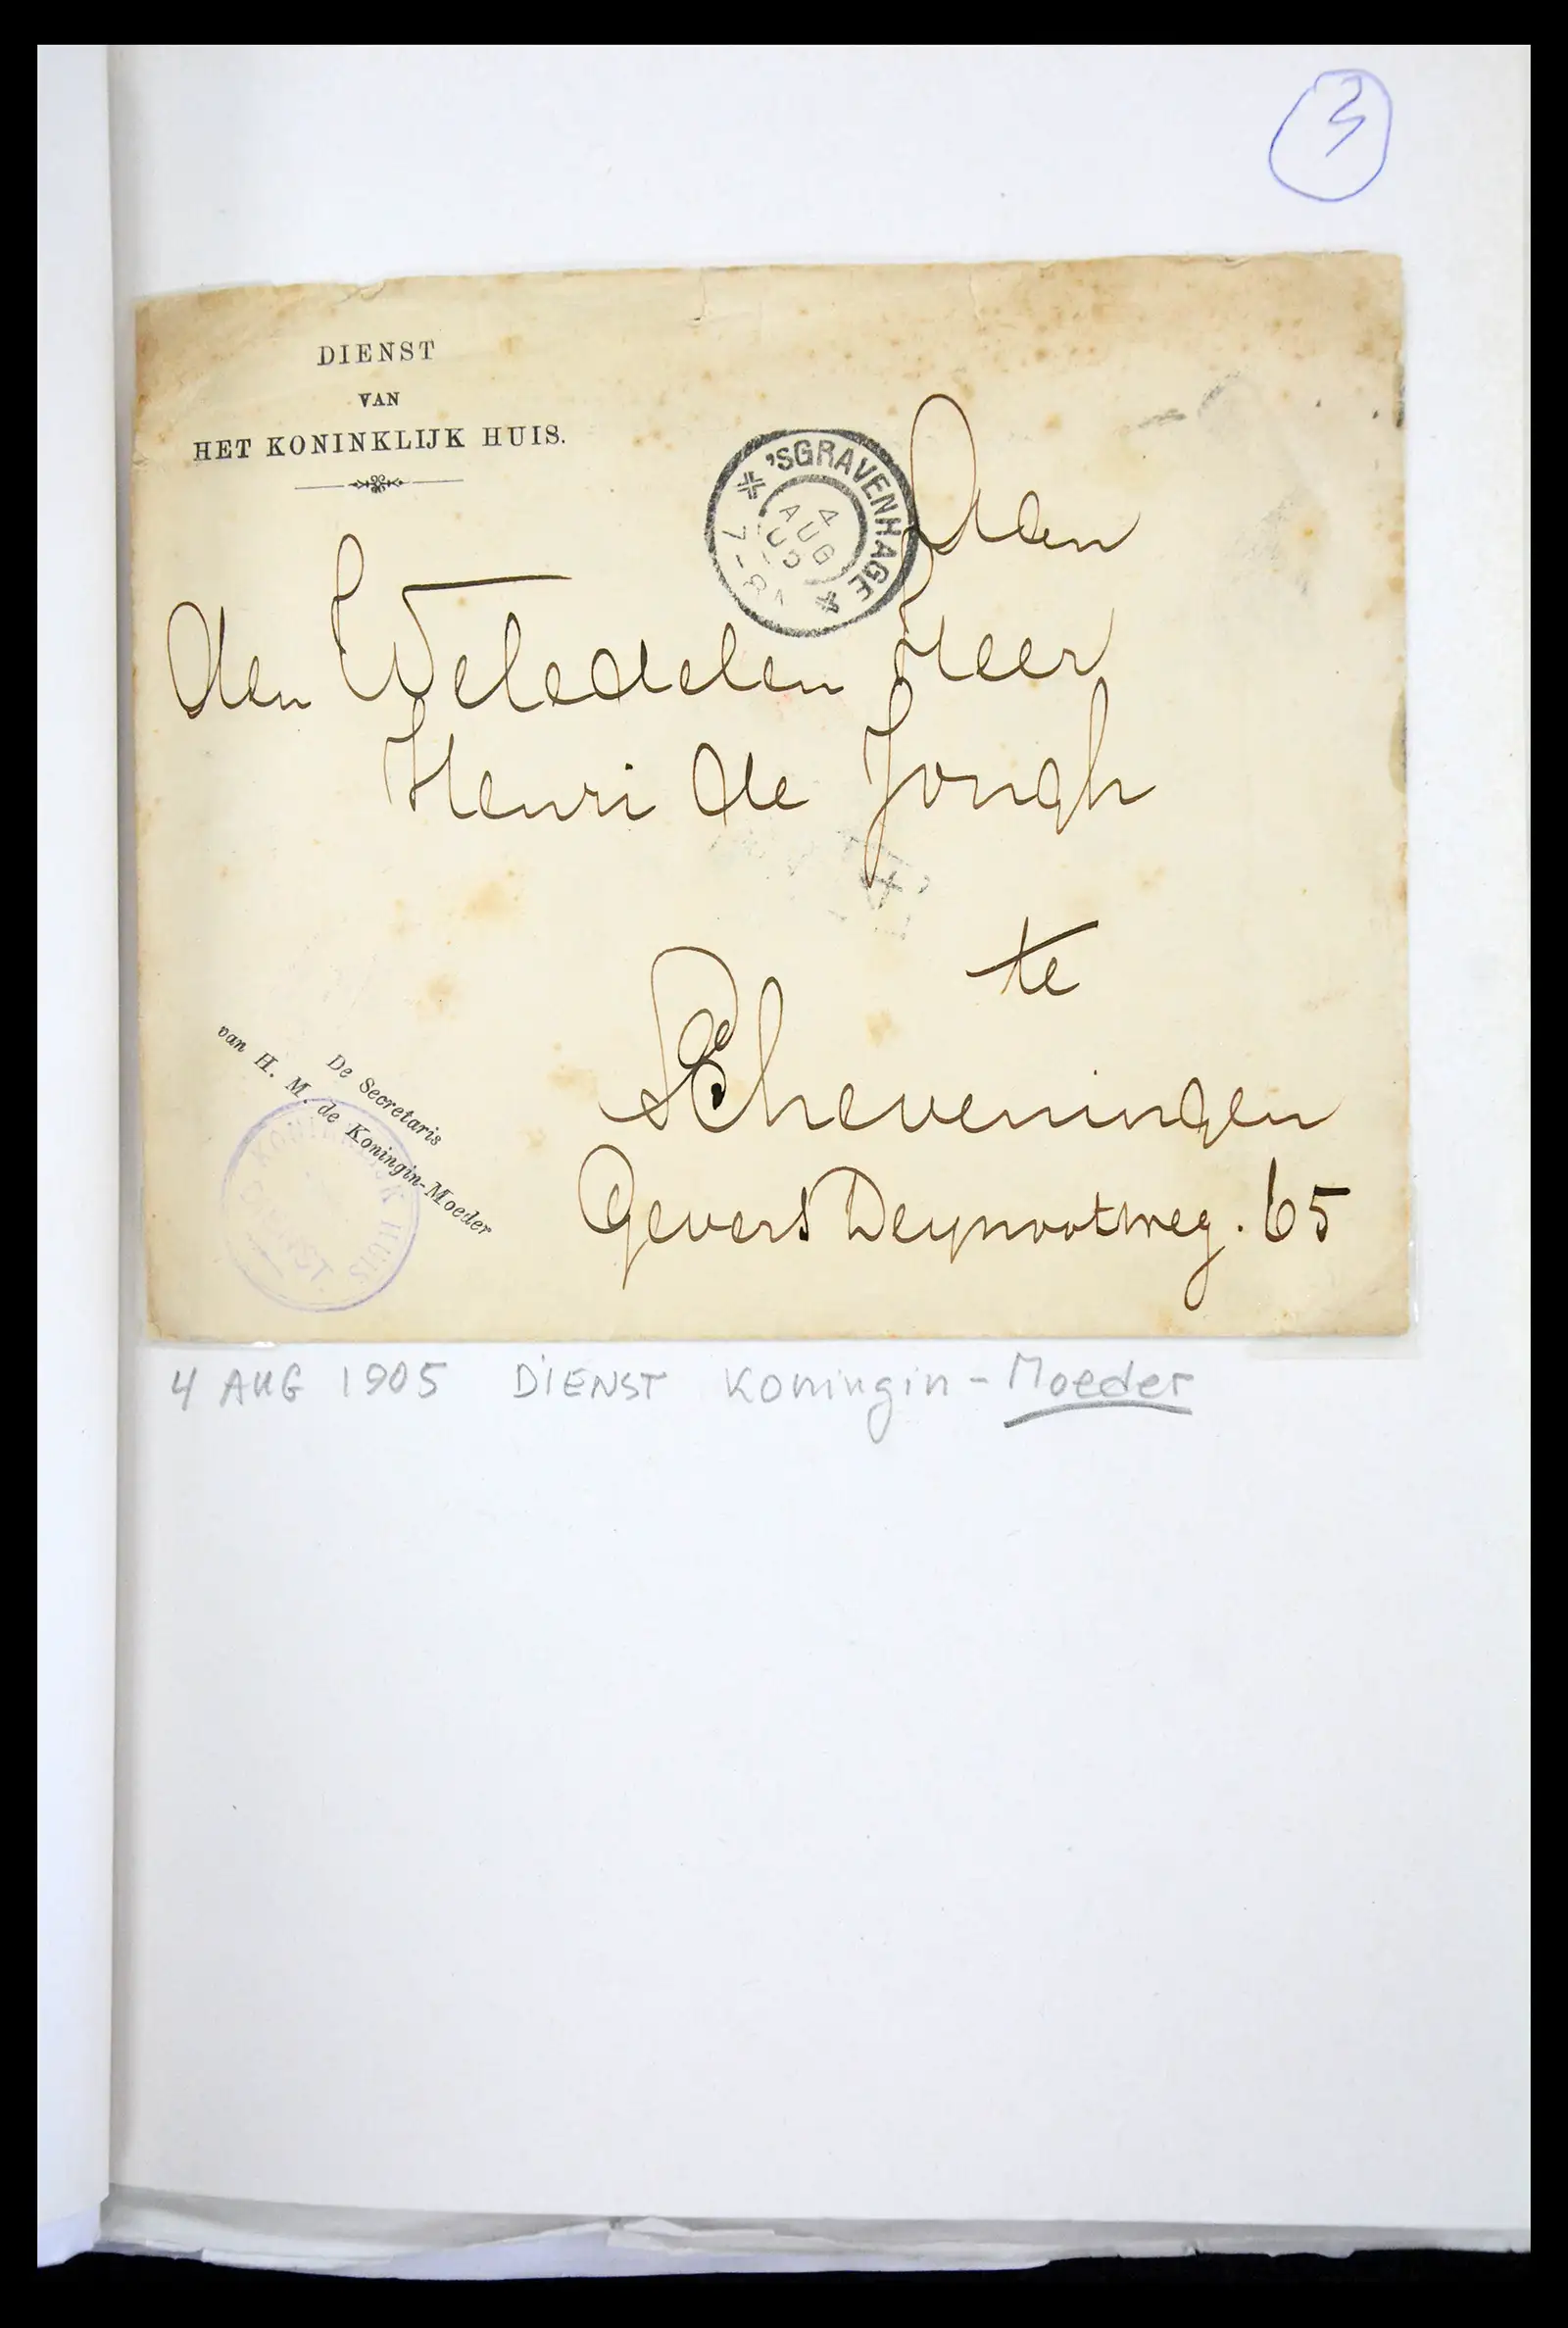 3
DIENST
VAN
HET KONINKLIJK HUIS.
'SGRAVENHAGE
4
AUG
05
7-8V
Aan
den Weledelen Heer
Henri de Jongh
te
Scheveningen
Gevers Deynootweg. 65
De Secretaris
van H. M. de Koningin-Moeder
KONINKLIJK HUIS
DIENST
4 AUG 1905 DIENST Koningin-Moeder